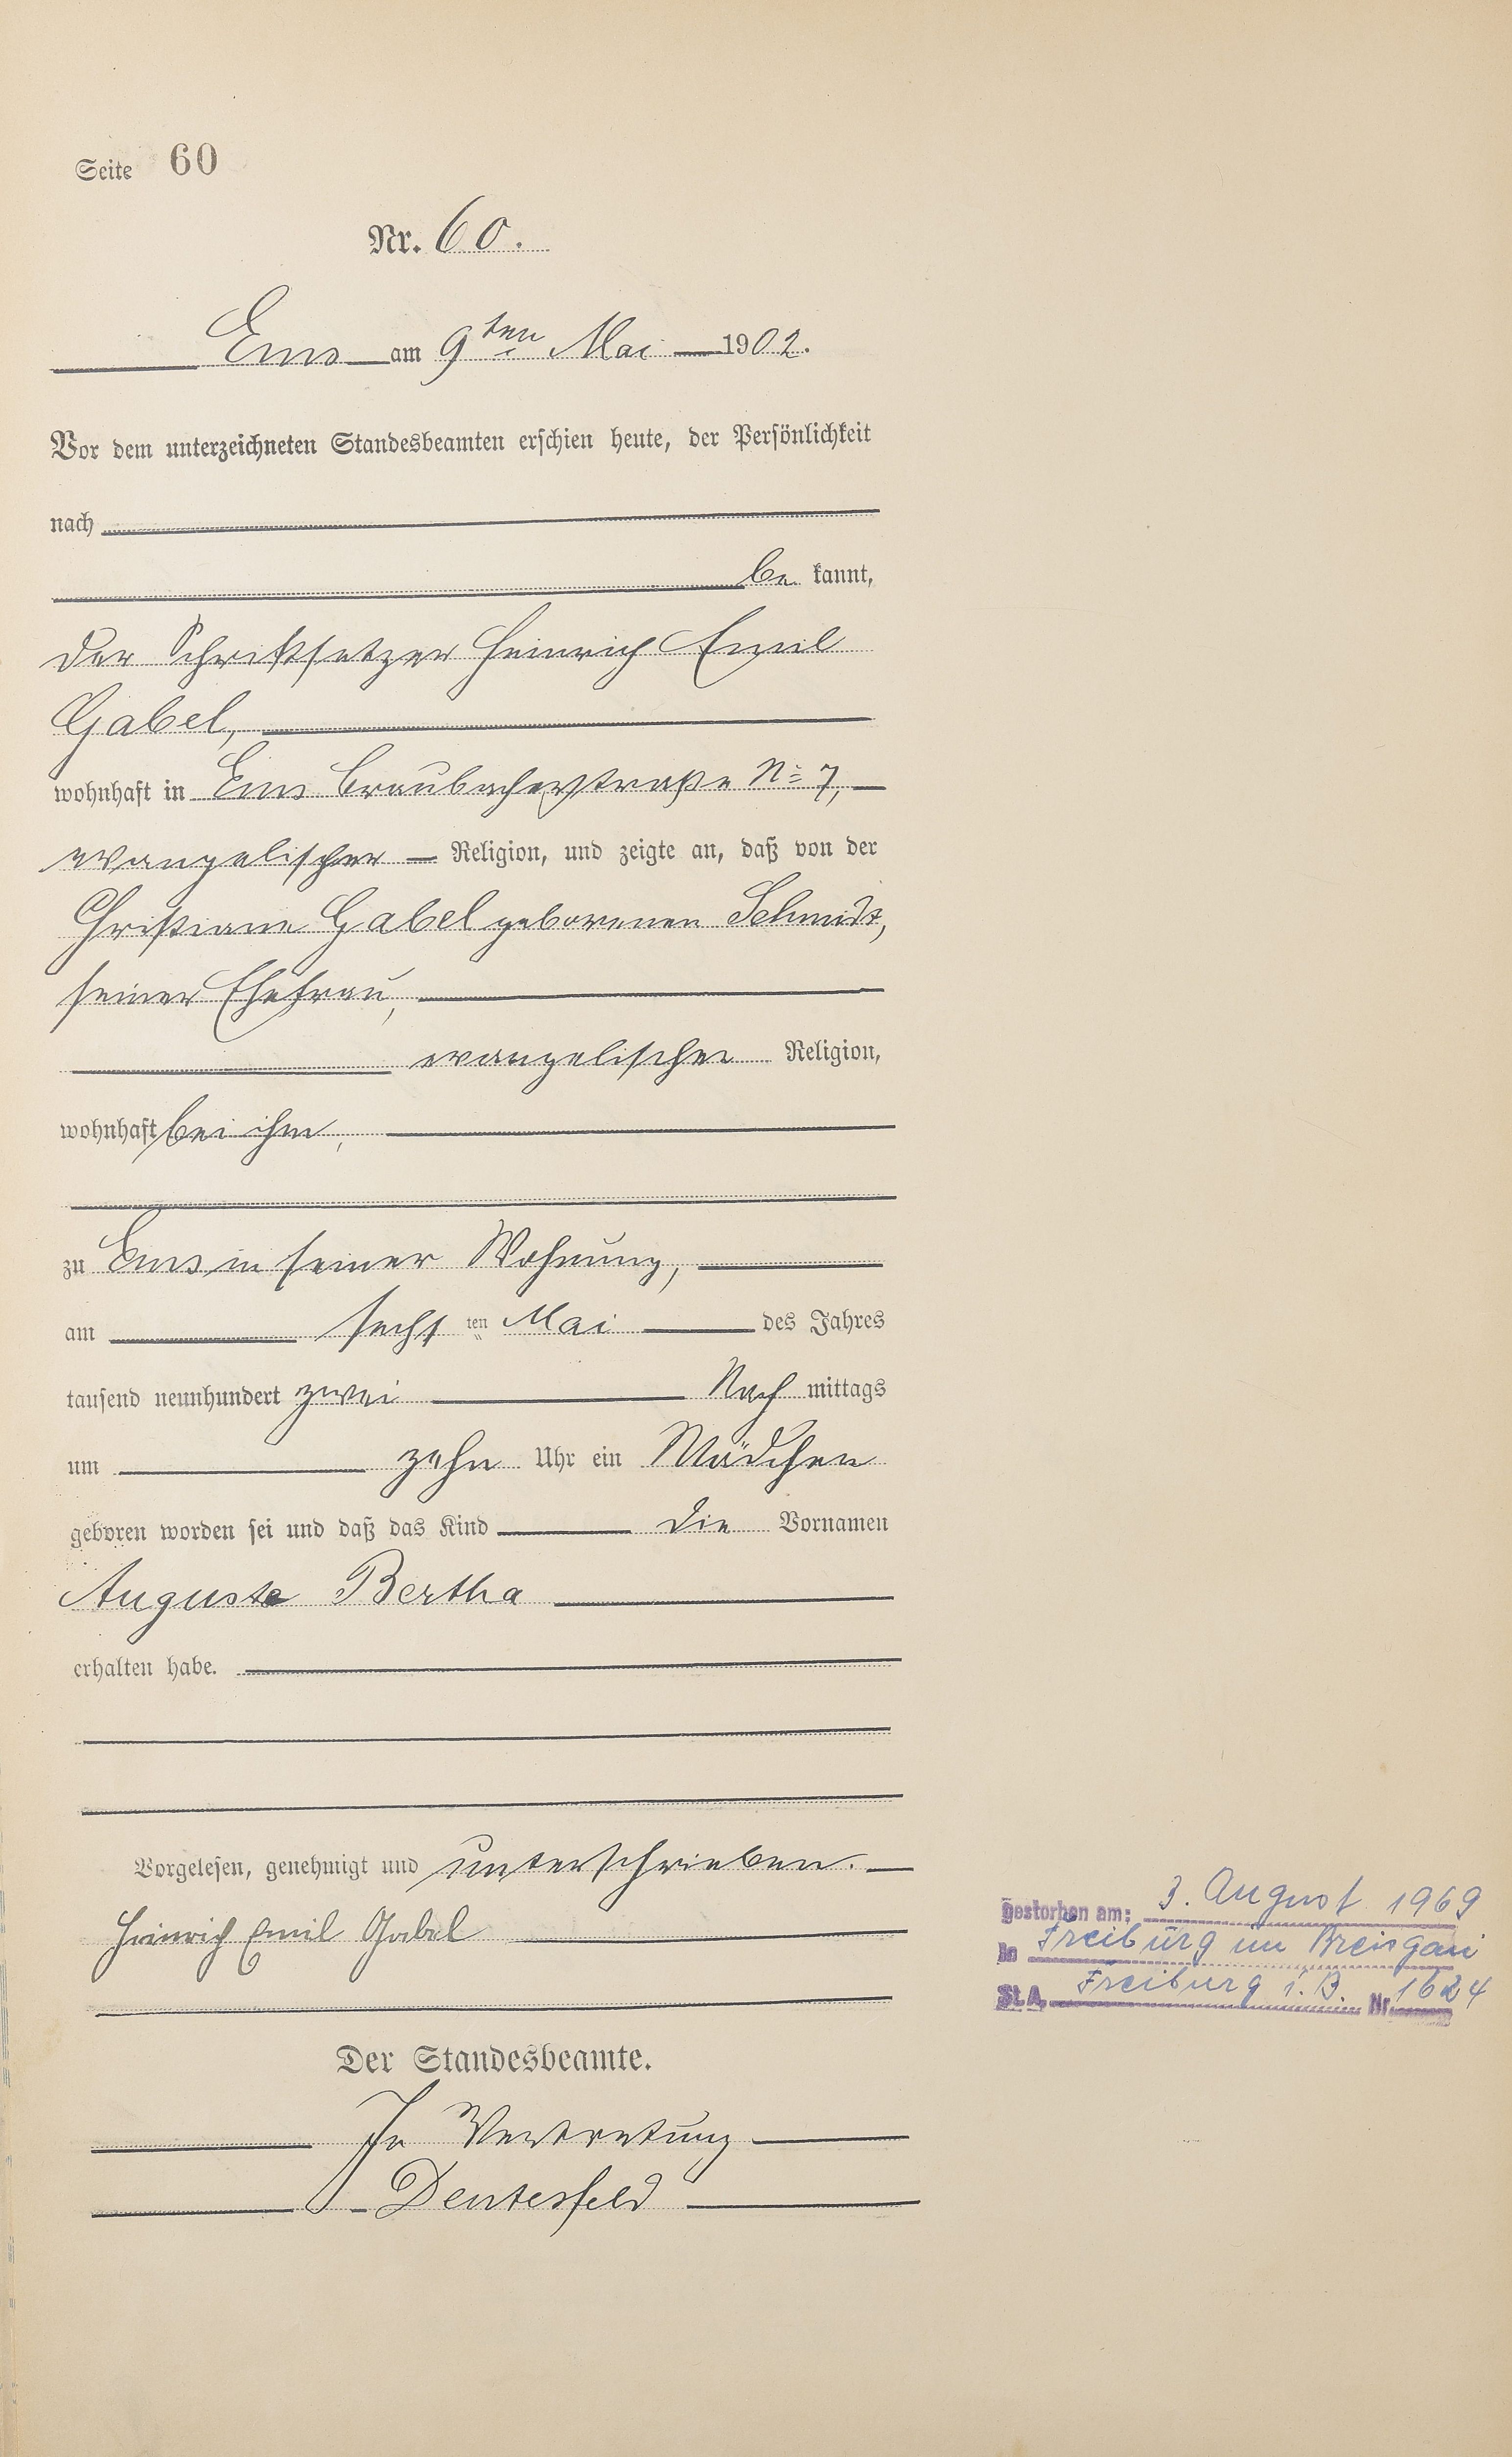 Seite 60
Nr. 60.
Ems am 9ten Mai 1902.
Vor dem unterzeichneten Standesbeamten erschien heute, der Persönlichkeit
nach
be kannt,
der Schriftsetzer Heinrich Emil
Gabel,
wohnhaft in Ems Braubacherstraße No 7,
evangelischer Religion, und zeigte an, daß von der
Christiane Gabel geborenen Schmidt,
seiner Ehefrau,
evangelischer Religion,
wohnhaft bei ihm,
zu Ems in seiner Wohnung,
am sechsten Mai des Jahres
tausend neunhundert zwei Nach mittags
um zehn Uhr ein Mädchen
geboren worden sei und daß das Kind die Vornamen
Auguste Bertha
erhalten habe.
Vorgelesen, genehmigt und unterschrieben.
Heinrich Emil Gabel
Der Standesbeamte.
In Vertretung
Deutesfeld
gestorben am: 3. August 1969
in Freiburg im Breisgau
St.A. Freiburg i. B. Nr. 1624